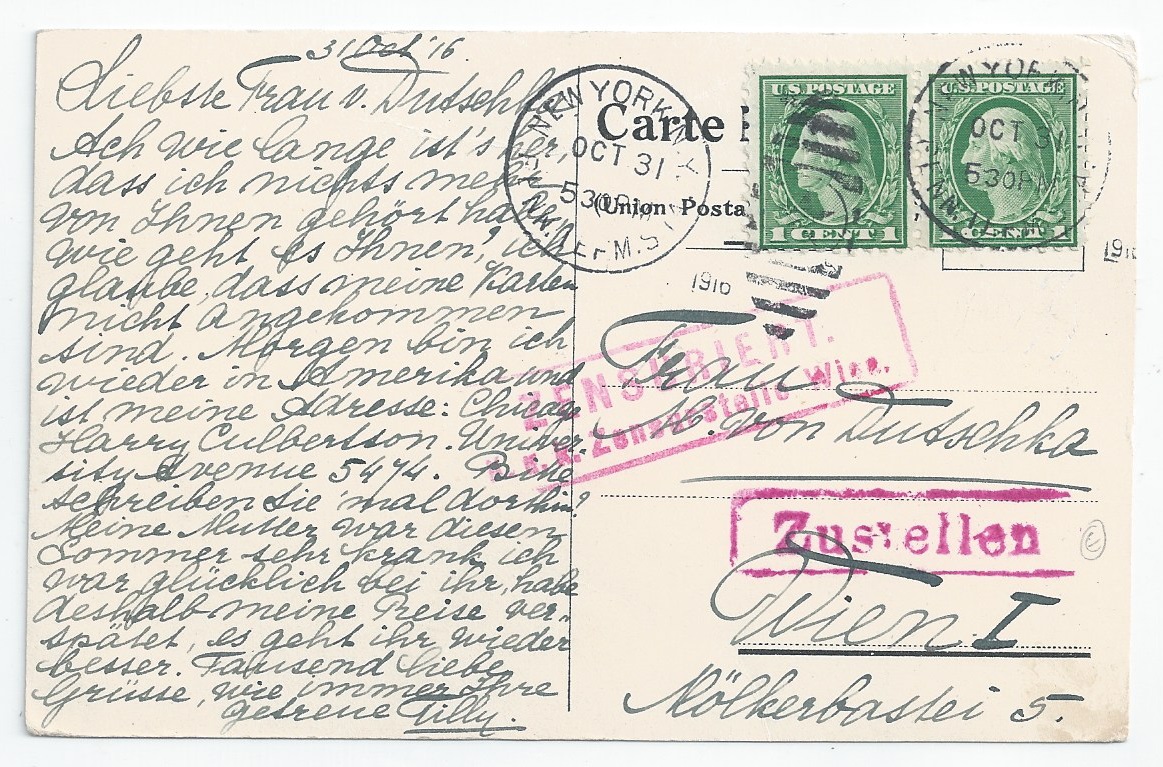 31 Oct '16
Liebste Frau v. Dutschka
Ach wie lange ist's her,
dass ich nichts mehr
von Ihnen gehört habe
wie geht es Ihnen?, ich
glaube, dass meine Karten
nicht angekommen
sind. Morgen bin ich
wieder in Amerika und
ist meine Adresse: Chicago
Harry Culbertson. Univer-
sity Avenue 5474. Bitte
schreiben Sie 'mal dorthin?
Meine Mutter war diesen
Sommer sehr krank, ich
war glücklich bei ihr, habe
deshalb meine Reise ver-
spätet, es geht ihr wieder
besser. Tausend liebe
Grüsse, wie immer Ihre
getreue Tilly.
Carte
(Union Posta
NEW YORK, N.Y.
OCT 31
530PM
1916
U.S. POSTAGE
1 CENT 1
U.S. POSTAGE
1 CENT 1
NEW YORK, N.Y.
OCT 31
530PM
191
ZENSURIERT.
K. k. Zensurstelle Wien.
Frau
M. von Dutschka
Zustellen
Wien I
Mölkerbastei 5.